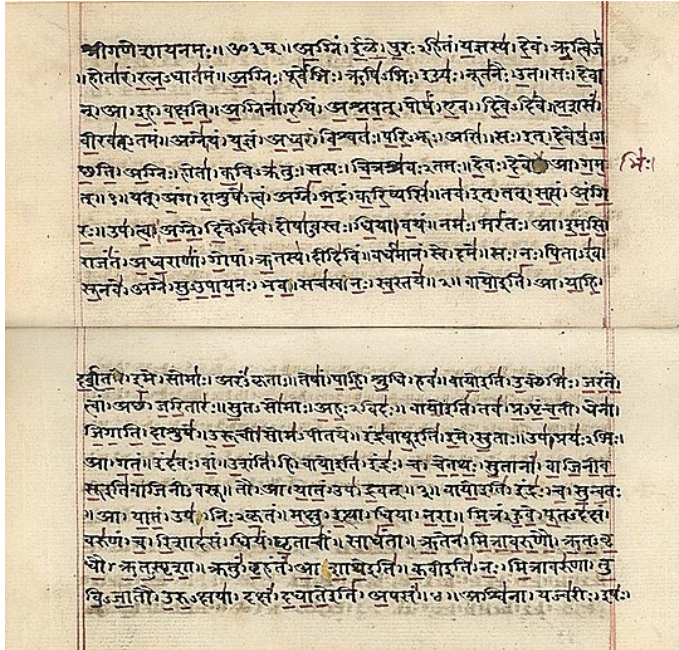 श्रीगणेशायनमः॥ॐ३म्॥अग्निं।ईळे।पुरःऽहितं।यज्ञस्य।देवं।ऋत्विजं
॥होतारं।रत्नऽधातमं॥अग्निः।पूर्वेभिः।ऋषिऽभिः।ईड्यः।नूतनैः।उत॥सः।देवा
न्।आ।इह।वक्षति॥अग्निना।रयिं।अश्नवत्।पोषं।एव।दिवेऽदिवे॥यशसं
वीरवत्ऽतमं॥अग्ने।यं।यज्ञं।अध्वरं।विश्वतः।परिऽभूः।असि॥सः।इत्।देवेषु।ग
च्छति॥अग्निः।होता।कविऽक्रतुः।सत्यः।चित्रश्रवःऽतमः॥देवः।देवे।आ।गम
भिः।
त्॥१॥यत्।अंग।दाशुषे।त्वं।अग्ने।भद्रं।करिष्यसि॥तव।इत्।तत्।सत्यं।अंगि
रः॥उप।त्वा।अग्ने।दिवेऽदिवे।दोषाऽवस्तः।धिया।वयं॥नमः।भरंतः।आ।इमसि
राजंतं।अध्वराणां।गोपां।ऋतस्य।दीदिविं॥वर्धमानं।स्वे।दमे॥सः।नः।पिताऽइव
सूनवे।अग्ने।सुऽउपायनः।भव॥सचस्व।नः।स्वस्तये॥२॥वायोइति।आ।याहि
दर्शत।इमे।सोमाः।अरंऽकृताः॥तेषां।पाहि।श्रुधि।हवं॥वायोइति।उक्थेभिः।जरंते
त्वां।अच्छ।जरितारः॥सुतऽसोमाः।अहःऽविदः॥वायोइति।तव।प्रऽपृंचती।धेना
जिगाति।दाशुषे॥उरूची।सोमऽपीतये॥इंद्रवायूइति।इमे।सुताः॥उप।प्रयःऽभिः।
आ।गतं॥इंदवः।वां।उशंति।हि॥वायोइति।इंद्रः।च।चेतथः।सुतानां।वाजिनीव
सूइतिवाजिनीऽवसू॥तौ।आ।यातं।उप।द्रवत्॥३॥वायोइति।इंद्रः।च।सुन्वतः
॥आ।यातं।उप।निःऽकृतं॥मक्षु।इत्था।धिया।नरा॥मित्रं।हुवे।पूतऽदक्षं
वरुणं।च।रिशादसं॥धियं।घृताचीं।साधंता॥ऋतेन।मित्रावरुणौ।ऋतऽवृ
धौ।ऋतऽस्पृशा॥क्रतुं।बृहंतं।आशाथेइति॥कवीइति।नः।मित्रावरुणा।तु
विऽजातौ।उरुऽक्षया॥दक्षं।दधातेइति।अपसं॥४॥अश्विना।यज्वरीः।इषः।